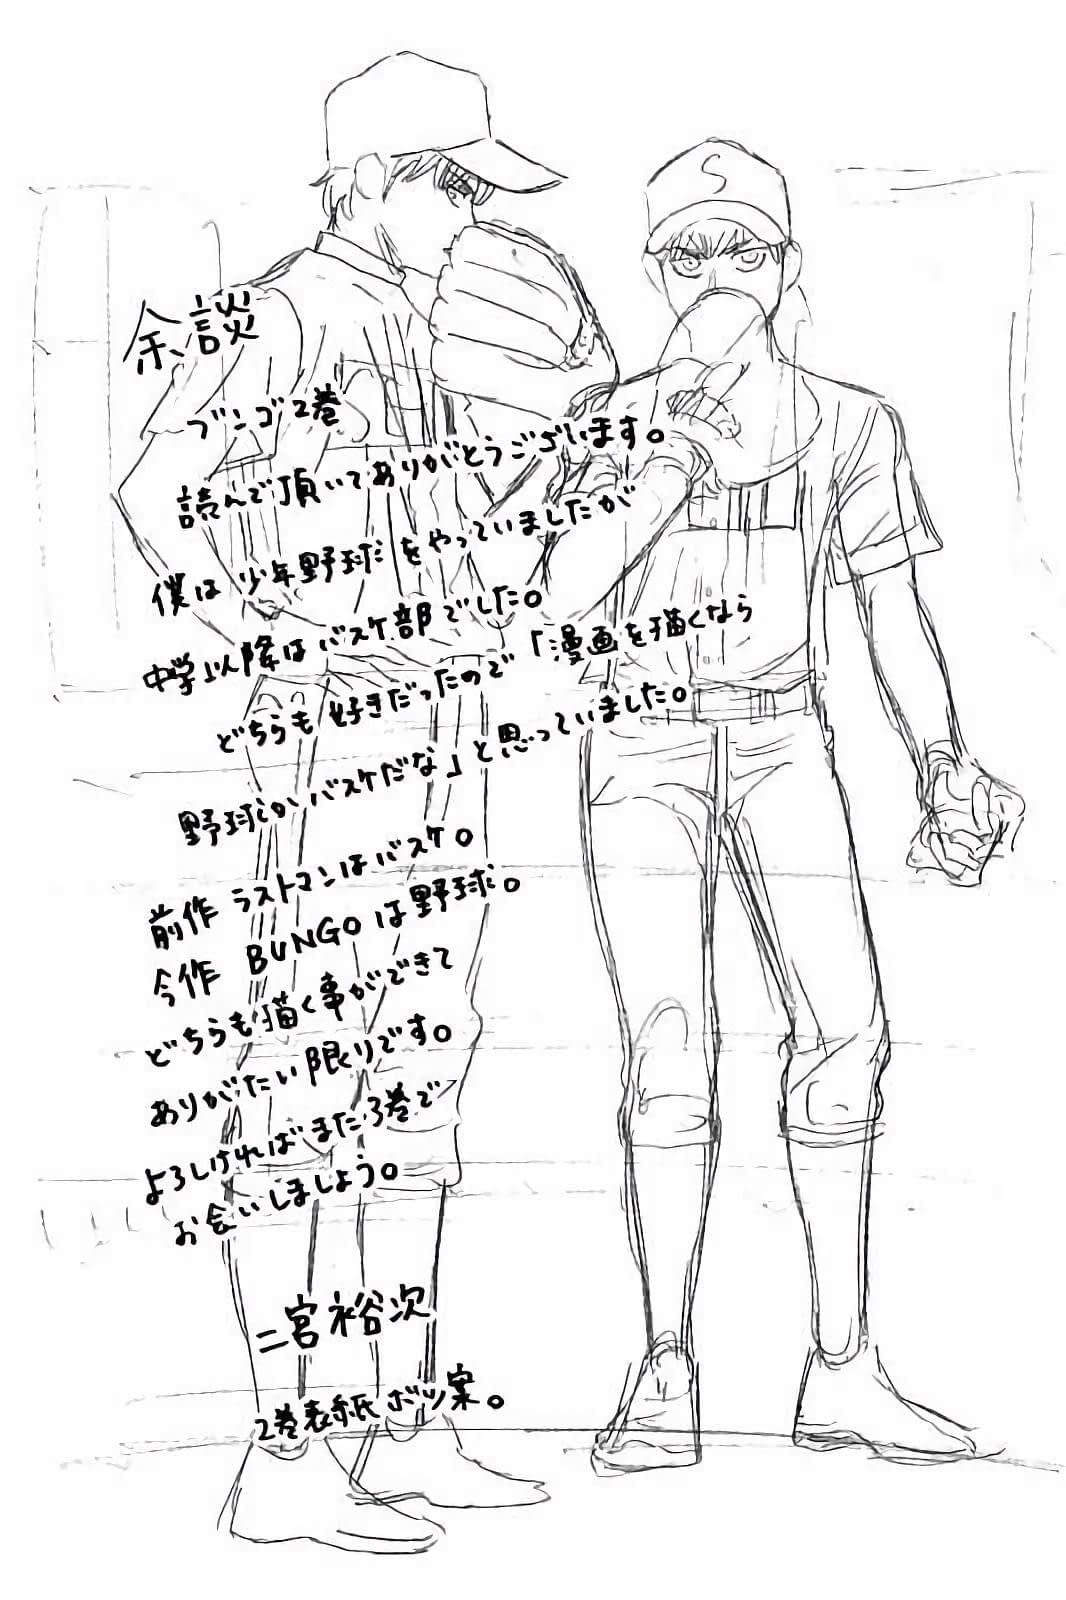 余談
ブンゴ2巻
読んで頂いてありがとうございます。
僕は少年野球をやっていましたが
中学以降はバスケ部でした。
どちらも好きだったので「漫画を描くなら
野球かバスケだな」と思っていました。
前作 ラストマンはバスケ。
今作 BUNGOは野球。
どちらも描く事ができて
ありがたい限りです。
よろしければまた3巻で
お会いしましょう。
二宮裕次
2巻表紙ボツ案。
S